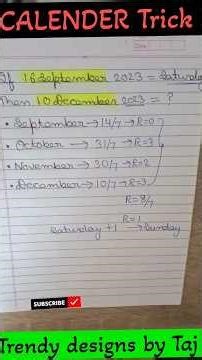 CALENDER Trick
If 16 September 2023 = Saturday
Then 10 December 2023 = ?
• September → 14/7 → R=0
• October → 31/7 → R=3
• November → 30/7 → R=2
• December → 10/7 → R=3
R=8/7
R=1
Saturday +1 → Sunday
SUBSCRIBE
Trendy designs by Taj